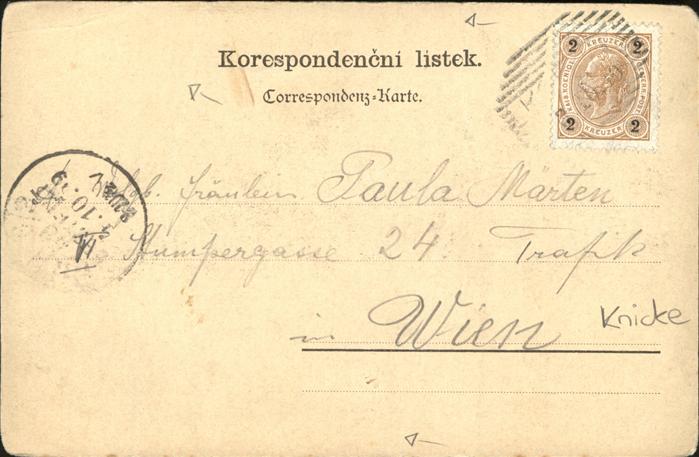 Korespondenční lístek.
Correspondenz-Karte.
2 KREUZER 2
2 KREUZER 2
Fräulein Paula Märten
Stumpergasse 24. Trafik
in Wien
Knicke